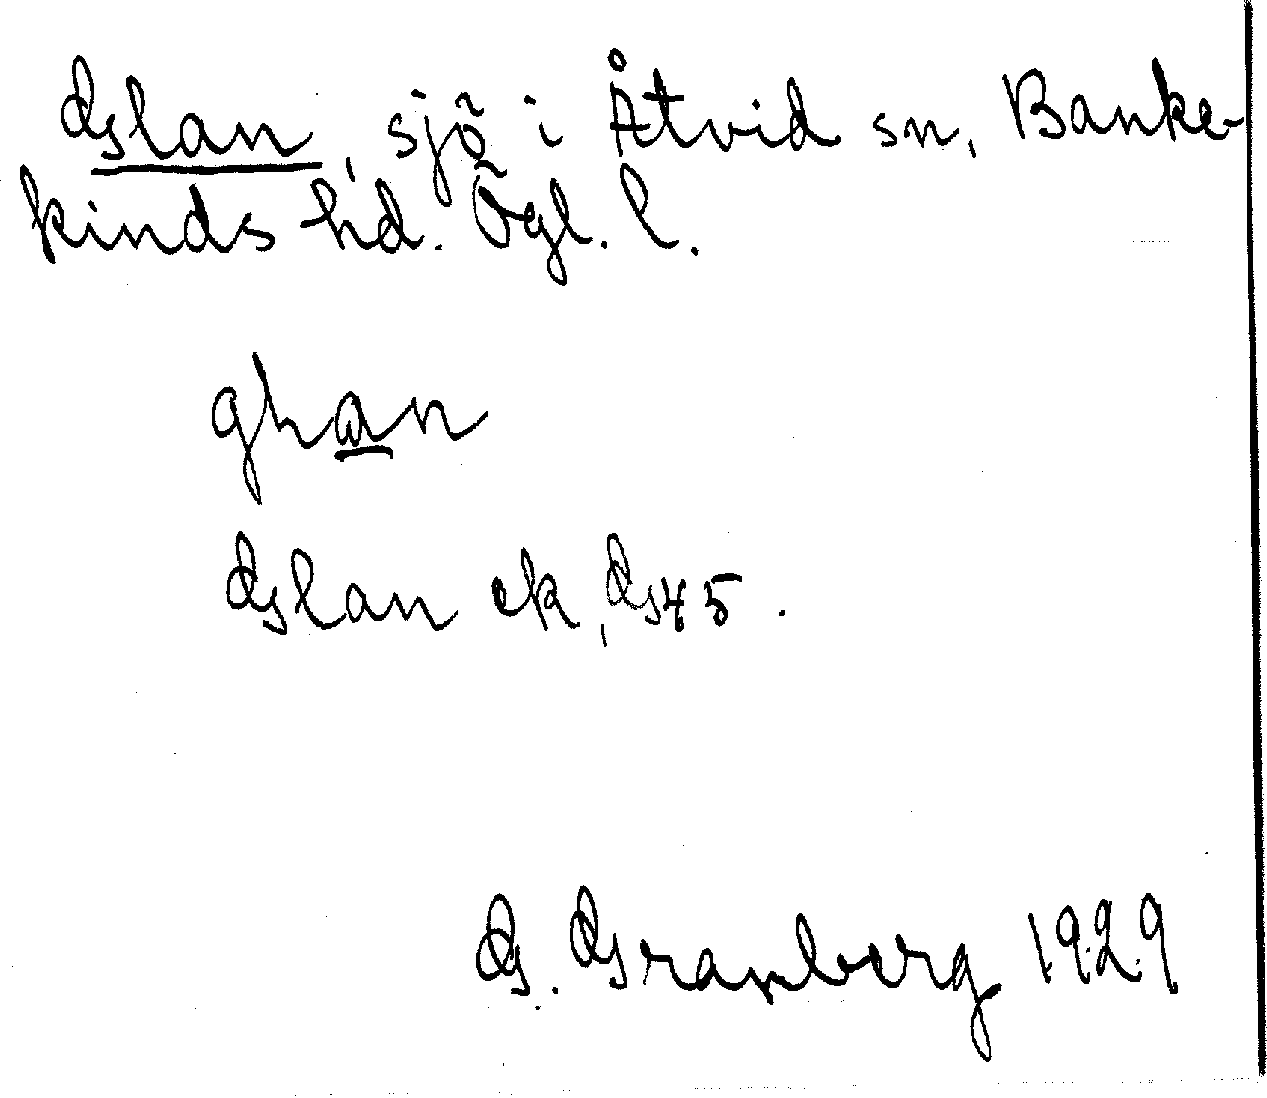 Glan, sjö i Åtvid sn, Banke-
kinds hd. Ögl. l.
glan
Glan ek, G 45.
G. Granberg 1929